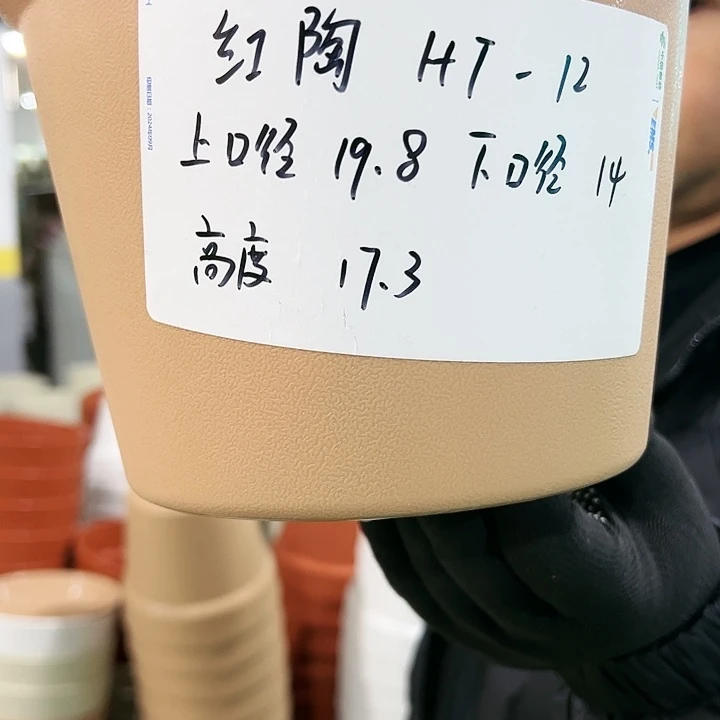 红陶 HT-12
上口径 19.8 下口径 14
高度 17.3